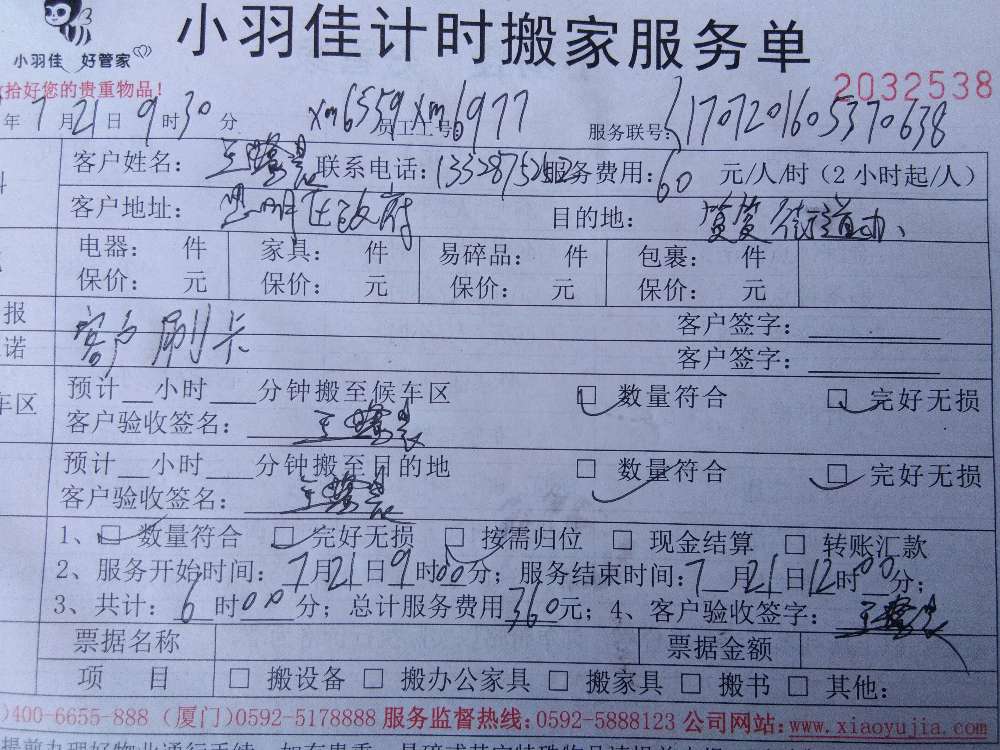 小羽佳计时搬家服务单
小羽佳 好管家
拾好您的贵重物品！ 2032538
年7月21日9时30分 xm6559 xm6977 员工工号: 服务联号:S1707201605370638
客户姓名: 王 联系电话: 服务费用:60 元/人/时（2小时起/人）
客户地址: 思明区政府 目的地: 筼筜街道办、
电器: 件 家具: 件 易碎品: 件 包裹: 件
保价: 元 保价: 元 保价: 元 保价: 元
报 客户签字:
诺 客户刷卡 客户签字:
车区 预计__小时___分钟搬至候车区 □ 数量符合 □ 完好无损
客户验收签名: 王
预计__小时___分钟搬至目的地 □ 数量符合 □ 完好无损
客户验收签名: 王
1、□ 数量符合 □ 完好无损 □ 按需归位 □ 现金结算 □ 转账汇款
2、服务开始时间: 7月21日9时00分; 服务结束时间:7月21日12时00分;
3、共计: 6时00分; 总计服务费用360元; 4、客户验收签字: 王
票据名称 票据金额
项 目 □ 搬设备 □ 搬办公家具 □ 搬家具 □ 搬书 □ 其他:
)400-6655-888 (厦门)0592-5178888 服务监督热线:0592-5888123 公司网站:www.xiaoyujia.com